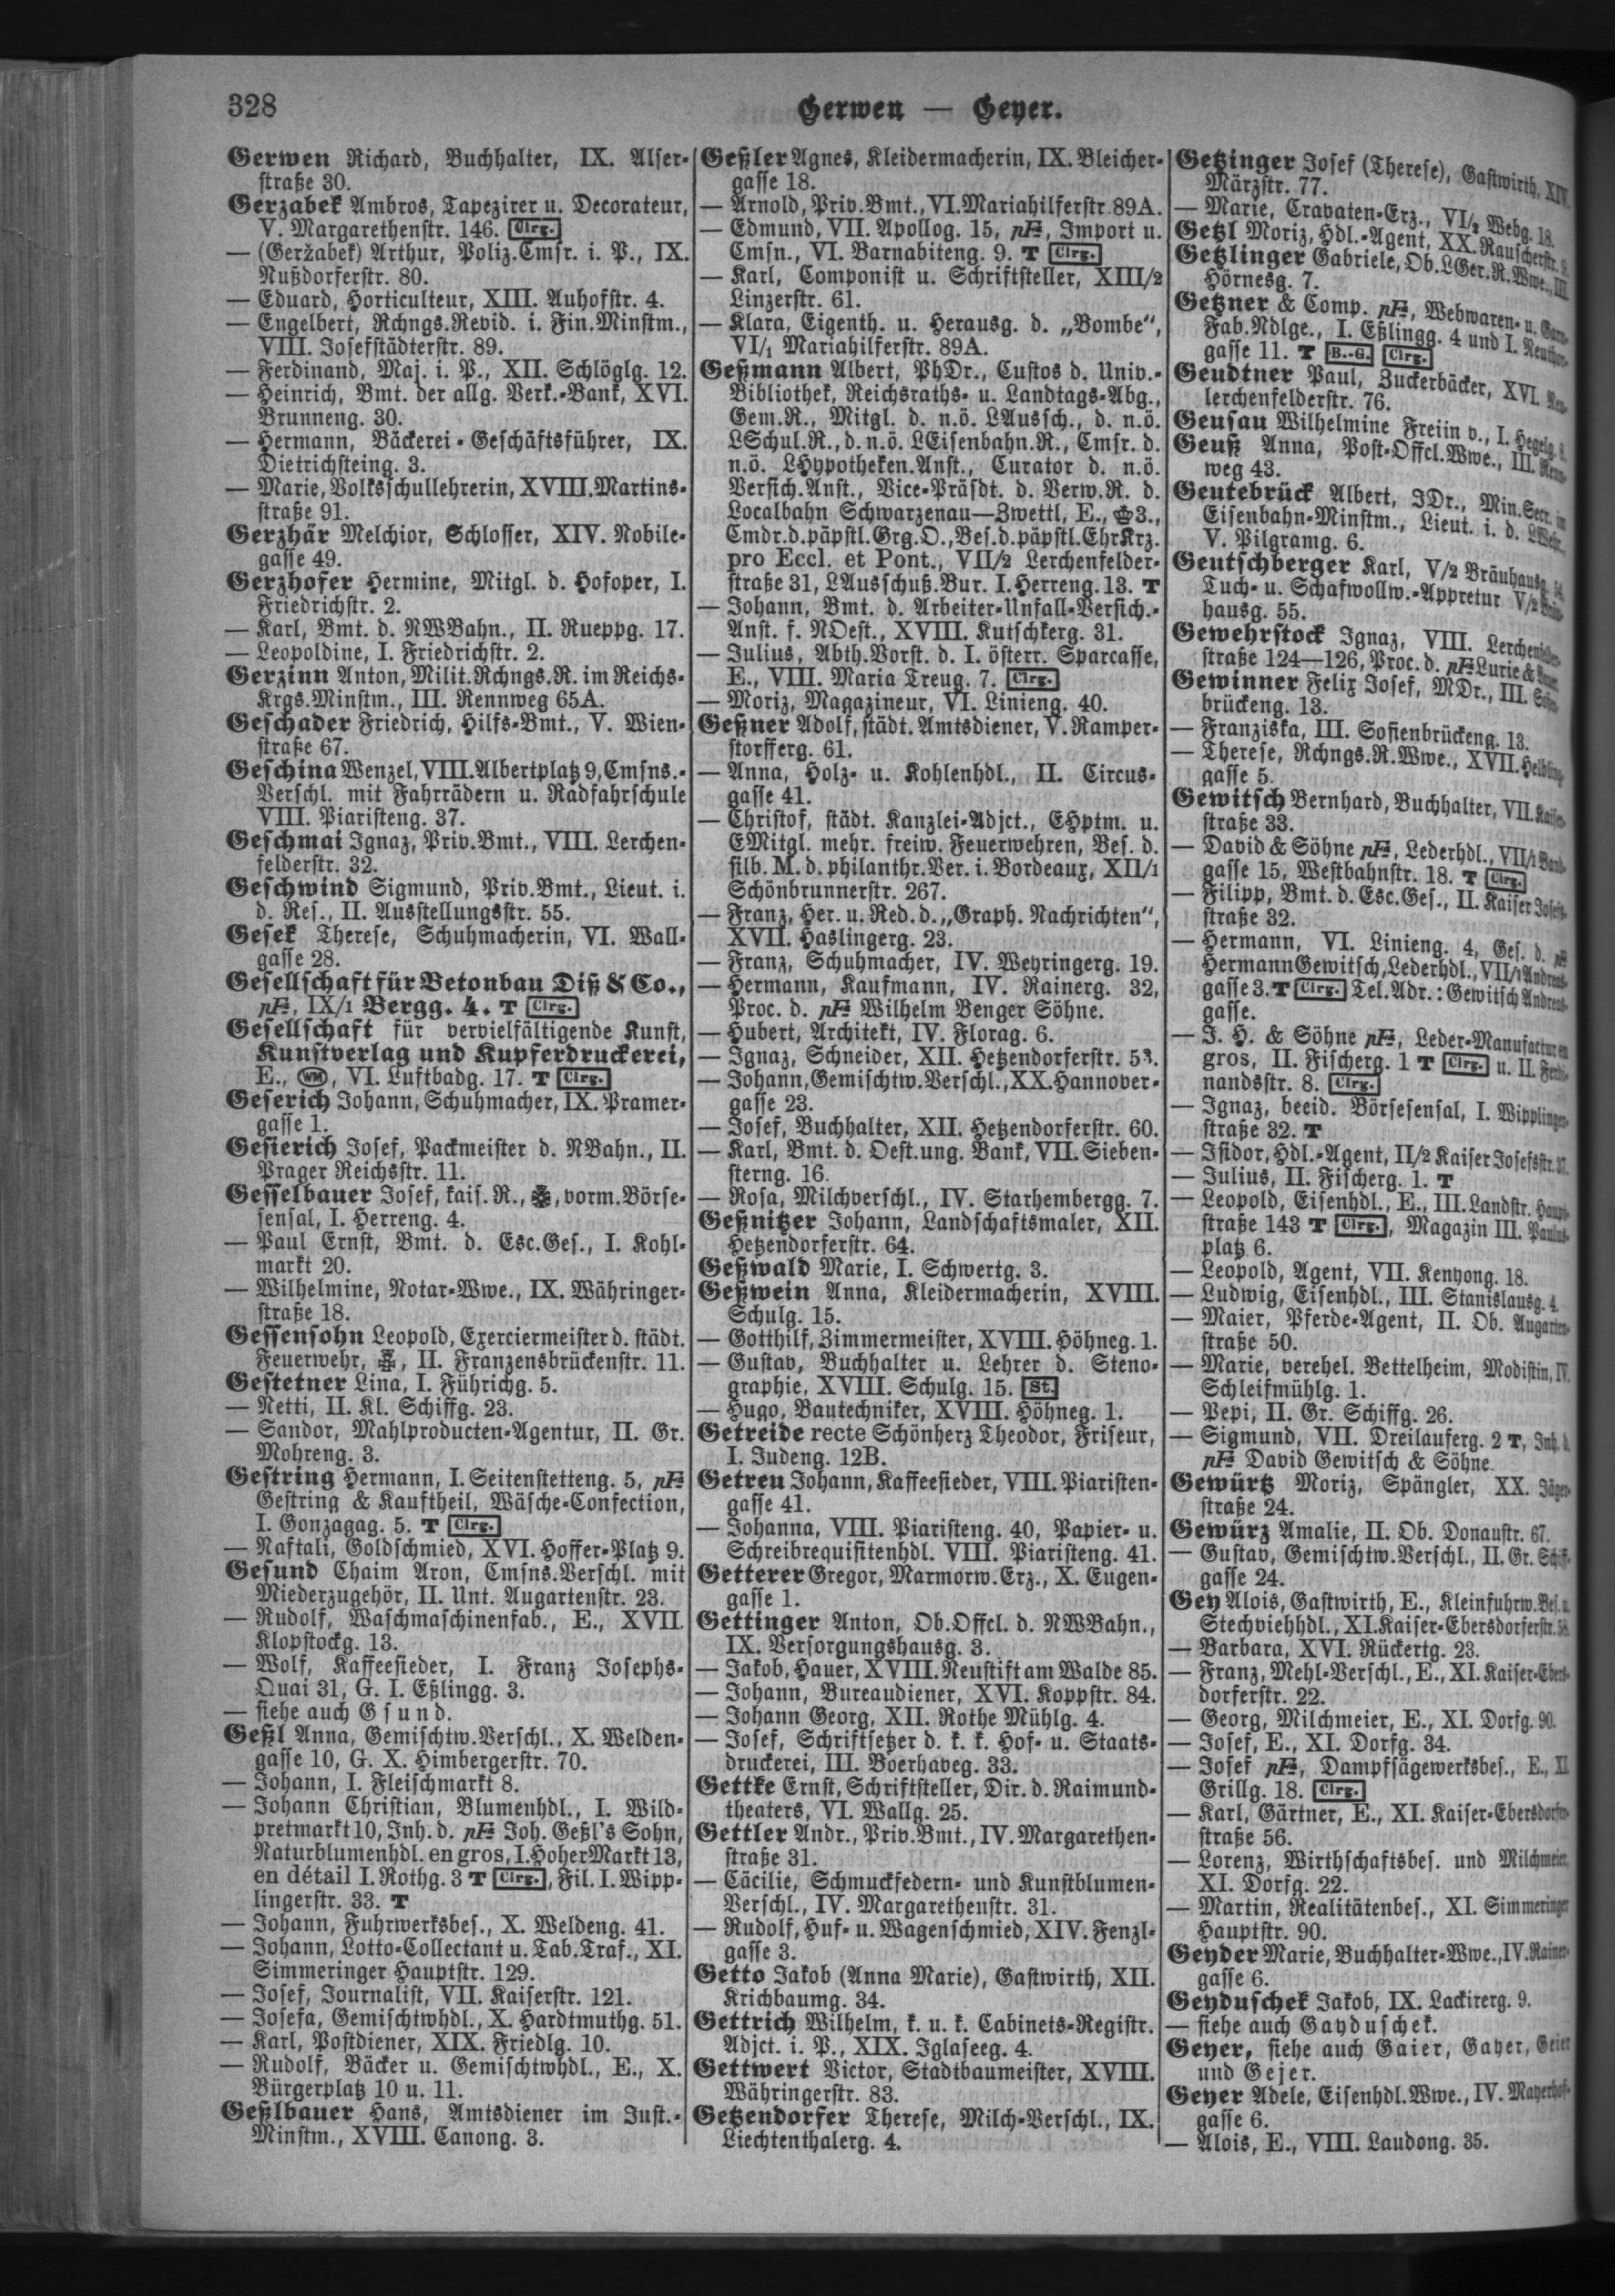 328
Gerwen — Geyer.
Gerwen Richard, Buchhalter, IX. Alser-
straße 30.
Gerzabek Ambros, Tapezirer u. Decorateur,
V. Margarethenstr. 146. Clrg.
— (Geržabek) Arthur, Poliz.Cmsr. i. P., IX.
Nußdorferstr. 80.
— Eduard, Horticulteur, XIII. Auhofstr. 4.
— Engelbert, Rchngs.Revid. i. Fin.Minstm.,
VIII. Josefstädterstr. 89.
— Ferdinand, Maj. i. P., XII. Schlöglg. 12.
— Heinrich, Bmt. der allg. Verk.-Bank, XVI.
Brunneng. 30.
— Hermann, Bäckerei-Geschäftsführer, IX.
Dietrichsteing. 3.
— Marie, Volksschullehrerin, XVIII. Martins-
straße 91.
Gerzhär Melchior, Schlosser, XIV. Nobile-
gasse 49.
Gerzhofer Hermine, Mitgl. d. Hofoper, I.
Friedrichstr. 2.
— Karl, Bmt. d. NWBahn., II. Rueppg. 17.
— Leopoldine, I. Friedrichstr. 2.
Gerzinn Anton, Milit.Rchngs.R. im Reichs-
Krgs.Minstm., III. Rennweg 65A.
Geschader Friedrich, Hilfs-Bmt., V. Wien-
straße 67.
Geschina Wenzel, VIII. Albertplatz 9, Cmsns.-
Verschl. mit Fahrrädern u. Radfahrschule
VIII. Piaristeng. 37.
Geschmai Ignaz, Priv.Bmt., VIII. Lerchen-
felderstr. 32.
Geschwind Sigmund, Priv.Bmt., Lieut. i.
d. Res., II. Ausstellungsstr. 55.
Gesek Therese, Schuhmacherin, VI. Wall-
gasse 28.
Gesellschaft für Betonbau Diß & Co.,
pF, IX/1 Bergg. 4. T Clrg.
Gesellschaft für vervielfältigende Kunst,
Kunstverlag und Kupferdruckerei,
E., WM, VI. Luftbadg. 17. T Clrg.
Geserich Johann, Schuhmacher, IX. Pramer-
gasse 1.
Gesierich Josef, Packmeister d. NBahn., II.
Prager Reichsstr. 11.
Gesselbauer Josef, kais. R., vorm. Börse-
sensal, I. Herreng. 4.
— Paul Ernst, Bmt. d. Esc.Ges., I. Kohl-
markt 20.
— Wilhelmine, Notar-Wwe., IX. Währinger-
straße 18.
Gessensohn Leopold, Exerciermeister d. städt.
Feuerwehr, II. Franzensbrückenstr. 11.
Gestetner Lina, I. Führichg. 5.
— Netti, II. Kl. Schiffg. 23.
— Sandor, Mahlproducten-Agentur, II. Gr.
Mohreng. 3.
Gestring Hermann, I. Seitenstetteng. 5, pF
Gestring & Kauftheil, Wäsche-Confection,
I. Gonzagag. 5. T Clrg.
— Naftali, Goldschmied, XVI. Hoffer-Platz 9.
Gesund Chaim Aron, Cmsns.Verschl. mit
Miederzugehör, II. Unt. Augartenstr. 23.
— Rudolf, Waschmaschinenfab., E., XVII.
Klopstockg. 13.
— Wolf, Kaffeesieder, I. Franz Josephs-
Quai 31, G. I. Eßlingg. 3.
— siehe auch Gsund.
Geßl Anna, Gemischtw.Verschl., X. Welden-
gasse 10, G. X. Himbergerstr. 70.
— Johann, I. Fleischmarkt 8.
— Johann Christian, Blumenhdl., I. Wild-
pretmarkt 10, Inh. d. pF Joh. Geßl's Sohn,
Naturblumenhdl. en gros, I. Hoher Markt 13,
en détail I. Rothg. 3 T Clrg., Fil. I. Wipp-
lingerstr. 33. T
— Johann, Fuhrwerksbes., X. Weldeng. 41.
— Johann, Lotto-Collectant u. Tab.Traf., XI.
Simmeringer Hauptstr. 129.
— Josef, Journalist, VII. Kaiserstr. 121.
— Josefa, Gemischtwhdl., X. Hardtmuthg. 51.
— Karl, Postdiener, XIX. Friedlg. 10.
— Rudolf, Bäcker u. Gemischtwhdl., E., X.
Bürgerplatz 10 u. 11.
Geßlbauer Hans, Amtsdiener im Just.-
Minstm., XVIII. Canong. 3.
Geßler Agnes, Kleidermacherin, IX. Bleicher-
gasse 18.
— Arnold, Priv.Bmt., VI. Mariahilferstr. 89A.
— Edmund, VII. Apollog. 15, pF, Import u.
Cmsn., VI. Barnabiteng. 9. T Clrg.
— Karl, Componist u. Schriftsteller, XIII/2
Linzerstr. 61.
— Klara, Eigenth. u. Herausg. d. „Bombe“,
VI/1 Mariahilferstr. 89A.
Geßmann Albert, PhDr., Custos d. Univ.-
Bibliothek, Reichsraths- u. Landtags-Abg.,
Gem.R., Mitgl. d. n.ö. LAussch., d. n.ö.
LSchul.R., d. n.ö. LEisenbahn.R., Cmsr. d.
n.ö. LHypotheken.Anst., Curator d. n.ö.
Versich.Anst., Vice-Präsdt. d. Verw.R. d.
Localbahn Schwarzenau—Zwettl, E., 3.,
Cmdr. d. päpstl. Grg.O., Bes. d. päpstl. EhrKrz.
pro Eccl. et Pont., VII/2 Lerchenfelder-
straße 31, LAusschuß.Bur. I. Herreng. 13. T
— Johann, Bmt. d. Arbeiter-Unfall-Versich.-
Anst. f. NOest., XVIII. Kutschkerg. 31.
— Julius, Abth.Vorst. d. I. österr. Sparcasse,
E., VIII. Maria Treug. 7. Clrg.
— Moriz, Magazineur, VI. Linieng. 40.
Geßner Adolf, städt. Amtsdiener, V. Ramper-
storfferg. 61.
— Anna, Holz- u. Kohlenhdl., II. Circus-
gasse 41.
— Christof, städt. Kanzlei-Adjct., EHptm. u.
EMitgl. mehr. freiw. Feuerwehren, Bes. d.
silb. M. d. philanthr. Ver. i. Bordeaux, XII/1
Schönbrunnerstr. 267.
— Franz, Her. u. Red. d. „Graph. Nachrichten“,
XVII. Haslingerg. 23.
— Franz, Schuhmacher, IV. Weyringerg. 19.
— Hermann, Kaufmann, IV. Rainerg. 32,
Proc. d. pF Wilhelm Benger Söhne.
— Hubert, Architekt, IV. Florag. 6.
— Ignaz, Schneider, XII. Hetzendorferstr. 53.
— Johann, Gemischtw.Verschl., XX. Hannover-
gasse 23.
— Josef, Buchhalter, XII. Hetzendorferstr. 60.
— Karl, Bmt. d. Oest.ung. Bank, VII. Sieben-
sterng. 16.
— Rosa, Milchverschl., IV. Starhembergg. 7.
Geßnitzer Johann, Landschaftsmaler, XII.
Hetzendorferstr. 64.
Geßwald Marie, I. Schwertg. 3.
Geßwein Anna, Kleidermacherin, XVIII.
Schulg. 15.
— Gotthilf, Zimmermeister, XVIII. Höhneg. 1.
— Gustav, Buchhalter u. Lehrer d. Steno-
graphie, XVIII. Schulg. 15. St.
— Hugo, Bautechniker, XVIII. Höhneg. 1.
Getreide recte Schönherz Theodor, Friseur,
I. Judeng. 12B.
Getreu Johann, Kaffeesieder, VIII. Piaristen-
gasse 41.
— Johanna, VIII. Piaristeng. 40, Papier- u.
Schreibrequisitenhdl. VIII. Piaristeng. 41.
Getterer Gregor, Marmorw.Erz., X. Eugen-
gasse 1.
Gettinger Anton, Ob.Offcl. d. NWBahn.,
IX. Versorgungshausg. 3.
— Jakob, Hauer, XVIII. Neustift am Walde 85.
— Johann, Bureaudiener, XVI. Koppstr. 84.
— Johann Georg, XII. Rothe Mühlg. 4.
— Josef, Schriftsetzer d. k. k. Hof- u. Staats-
druckerei, III. Boerhaveg. 33.
Gettke Ernst, Schriftsteller, Dir. d. Raimund-
theaters, VI. Wallg. 25.
Gettler Andr., Priv.Bmt., IV. Margarethen-
straße 31.
— Cäcilie, Schmuckfedern- und Kunstblumen-
Verschl., IV. Margarethenstr. 31.
— Rudolf, Huf- u. Wagenschmied, XIV. Fenzl-
gasse 3.
Getto Jakob (Anna Marie), Gastwirth, XII.
Krichbaumg. 34.
Gettrich Wilhelm, k. u. k. Cabinets-Registr.
Adjct. i. P., XIX. Iglaseeg. 4.
Gettwert Victor, Stadtbaumeister, XVIII.
Währingerstr. 83.
Getzendorfer Therese, Milch-Verschl., IX.
Liechtenthalerg. 4.
Getzinger Josef (Therese), Gastwirth, XIV.
Märzstr. 77.
— Marie, Cravaten-Erz., VI/2 Webg. 18.
Getzl Moriz, Hdl.-Agent, XX. Rauscherstr.
Getzlinger Gabriele, Ob.LGer.R.Wwe., III.
Hörnesg. 7.
Getzner & Comp. pF, Webwaren- u. Garn-
Fab.Ndlge., I. Eßlingg. 4 und I. Neuthor-
gasse 11. T B.-G. Clrg.
Geudtner Paul, Zuckerbäcker, XVI. Neu-
lerchenfelderstr. 76.
Geusau Wilhelmine Freiin v., I. Hegelg. 8.
Geuß Anna, Post-Offcl.Wwe., III. Renn-
weg 43.
Geutebrück Albert, JDr., Min.Secr. im
Eisenbahn-Minstm., Lieut. i. d. LWehr,
V. Pilgramg. 6.
Geutschberger Karl, V/2 Bräuhausg. 54,
Tuch- u. Schafwollw.-Appretur V/2 Bräu-
hausg. 55.
Gewehrstock Ignaz, VIII. Lerchenfelder-
straße 124—126, Proc. d. pF Lurie &
Gewinner Felix Josef, MDr., III. Sofien-
brückeng. 13.
— Franziska, III. Sofienbrückeng. 13.
— Therese, Rchngs.R.Wwe., XVII. Helbling-
gasse 5.
Gewitsch Bernhard, Buchhalter, VII. Kaiser-
straße 33.
— David & Söhne pF, Lederhdl., VII/1 Band-
gasse 15, Westbahnstr. 18. T Clrg.
— Filipp, Bmt. d. Esc.Ges., II. Kaiser Josefs-
straße 32.
— Hermann, VI. Linieng. 4, Ges. d. pF
Hermann Gewitsch, Lederhdl., VII/1 Andreas-
gasse 3. T Clrg. Tel.Adr.: Gewitsch Andreas-
gasse.
— J. H. & Söhne pF, Leder-Manufactur en
gros, II. Fischerg. 1 T Clrg. u. II. Ferdi-
nandsstr. 8. Clrg.
— Ignaz, beeid. Börsesensal, I. Wipplinger-
straße 32. T
— Isidor, Hdl.-Agent, II/2 Kaiser Josefsstr. 37.
— Julius, II. Fischerg. 1. T
— Leopold, Eisenhdl., E., III. Landstr. Haupt-
straße 143 T Clrg., Magazin III. Paulus-
platz 6.
— Leopold, Agent, VII. Kenyong. 18.
— Ludwig, Eisenhdl., III. Stanislausg. 4.
— Maier, Pferde-Agent, II. Ob. Augarten-
straße 50.
— Marie, verehel. Bettelheim, Modistin, IV.
Schleifmühlg. 1.
— Pepi, II. Gr. Schiffg. 26.
— Sigmund, VII. Dreilauferg. 2 T, Inh. d.
pF David Gewitsch & Söhne.
Gewürtz Moriz, Spängler, XX. Jäger-
straße 24.
Gewürz Amalie, II. Ob. Donaustr. 67.
— Gustav, Gemischtw.Verschl., II. Gr. Schiff-
gasse 24.
Gey Alois, Gastwirth, E., Kleinfuhrw.Bes. u.
Stechviehhdl., XI. Kaiser-Ebersdorferstr. 58.
— Barbara, XVI. Rückertg. 23.
— Franz, Mehl-Verschl., E., XI. Kaiser-Ebers-
dorferstr. 22.
— Georg, Milchmeier, E., XI. Dorfg. 90.
— Josef, E., XI. Dorfg. 34.
— Josef pF, Dampfsägewerksbes., E., XI.
Grillg. 18. Clrg.
— Karl, Gärtner, E., XI. Kaiser-Ebersdorfer-
straße 56.
— Lorenz, Wirthschaftsbes. und Milchmeier,
XI. Dorfg. 22.
— Martin, Realitätenbes., XI. Simmeringer
Hauptstr. 90.
Geyder Marie, Buchhalter-Wwe., IV. Rainer-
gasse 6.
Geyduschek Jakob, IX. Lackirerg. 9.
— siehe auch Gayduschek.
Geyer, siehe auch Gaier, Gayer, Geier
und Gejer.
Geyer Adele, Eisenhdl.Wwe., IV. Mayerhof-
gasse 6.
— Alois, E., VIII. Laudong. 35.